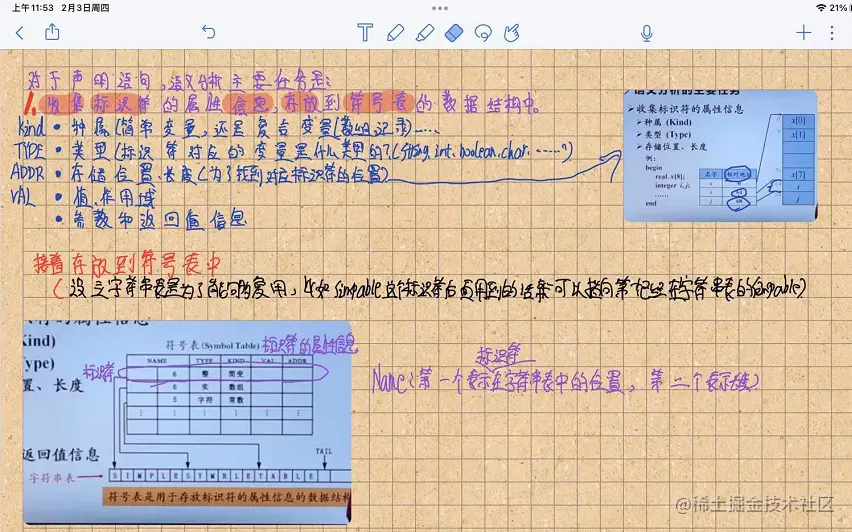 上午11:53 2月3日周四
21%
对于声明语句,语义分析主要任务是:
1.收集标识符的属性信息,存放到符号表的数据结构中。
Kind • 种属(简单变量,还是复合变量(数组,记录)……
TYPE • 类型(标识符对应的变量是什么类型的?(String,int,boolean,char……?)
ADDR • 存储位置、长度(为了找到对应标识符的位置)
VAL • 值、作用域
• 参数和返回值信息
语义分析的主要任务
➢收集标识符的属性信息
➢种属 (Kind)
➢类型 (Type)
➢存储位置、长度
例:
begin
real x[8];
integer i, j;
……
end
名字 相对地址
x 0
i 64
j 68
x[0]
x[1]
x[7]
接着存放到符号表中
(设立字符串表是为了能何时复用,比如simpable这个标识符后面用到的话就可以指向第一次出现在字符串表的simpable)
符的属性信息
Kind)
Type)
置、长度
返回值信息
符号表(Symbol Table)
标识符的属性信息
标识符
NAME TYPE KIND VAL ADDR
6 整 简变
6 实 数组
5 字符 常数
⋮ ⋮ ⋮ ⋮ ⋮
TAIL
字符串表
S I M P L E S Y M B L E T A B L E
符号表是用于存放标识符的属性信息的数据结构
标识符
Name(第一个表示在字符串表中的位置,第二个表示长度)
@稀土掘金技术社区